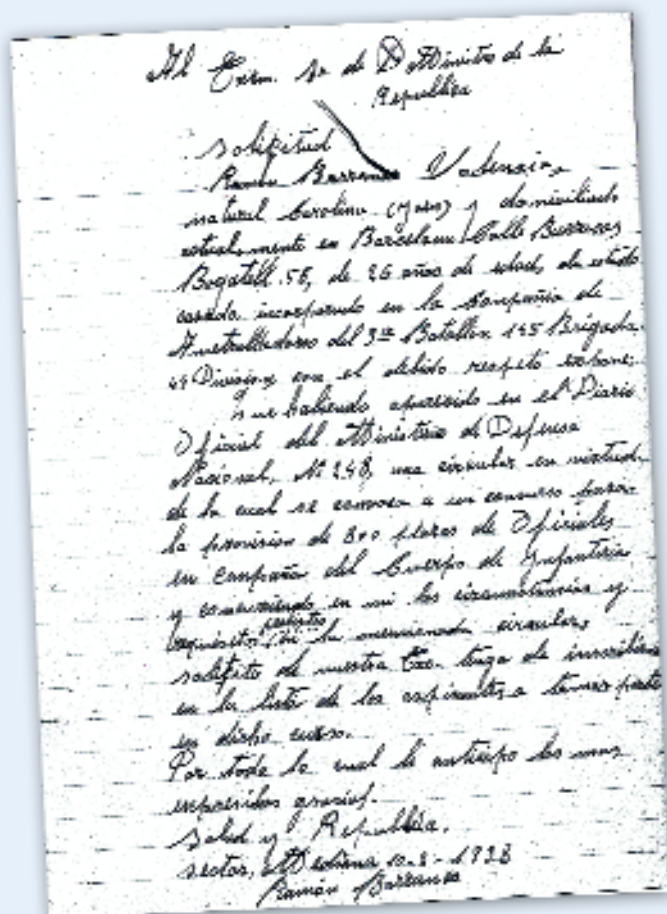 Al Exm. Sr de D Ministro de la
Republica
solicitud
Ramón Barranco Valencia,
natural Carolina (Jaén) y domiciliado
actualmente en Barcelona Calle Barracas
Bogatell 58, de 26 años de edad, de estado
casado, incorporado en la Compañia de
Ametralladoras del 3er Batallon 145 Brigada
44 Division con el debido respeto expone:
Que habiendo aparecido en el Diario
Oficial del Ministerio de Defensa
Nacional, Nº 248, una circular en virtud
de la cual se convoca a un concurso para
la provision de 800 plazas de Oficiales
en campaña del Cuerpo de Infanteria
y concurriendo en mi las circunstancias y
requisitos de la mencionada circular,
solicito de vuestra Exc. tenga de inscribirme
en la lista de los aspirantes a tomar parte
en dicho curso.
Por todo lo cual le anticipo las mas
expresivas gracias.
Salud y Republica.
sector, Mediana 10-8-1938
Ramón Barranco